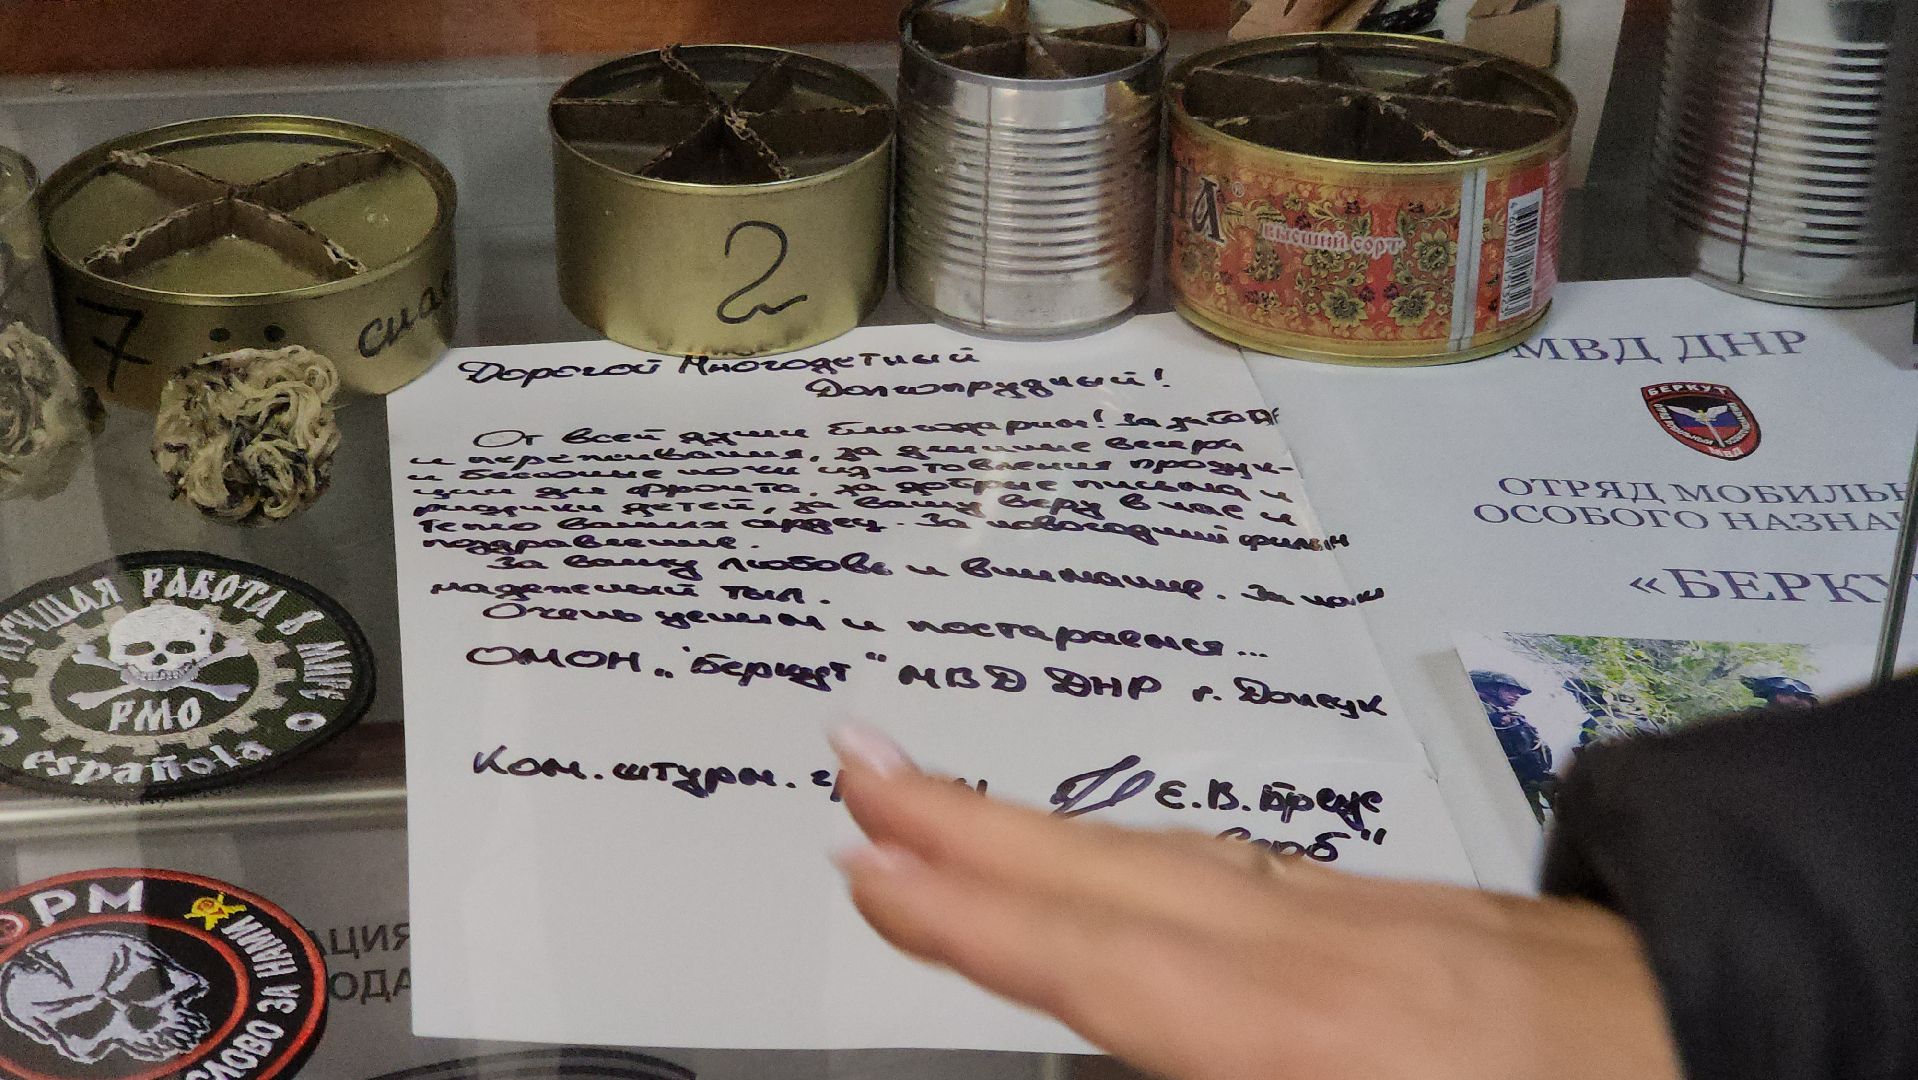 7
спас
2
ВЫСШИЙ СОРТ
Дорогой Многодетный
Долгопрудный!
От всей души благодарим! За заботу
и переживания, за длинные вечера
и бессонные ночи изготовления продук-
ции для фронта, за добрые письма и
рисунки детей, за вашу веру в нас и
тепло ваших сердец. За новогодний фильм
поздравление.
За вашу любовь и внимание. За наш
надежный тыл.
Очень ценим и постараемся...
ОМОН „Беркут" МВД ДНР г. Донецк
Ком. штурм.
Е.В.
МВД ДНР
БЕРКУТ
МВД
ОТРЯД МОБИЛЬН
ОСОБОГО НАЗНАЧ
«БЕРКУ
ЛУЧШАЯ РАБОТА В МИРЕ
РМО
española
РМ
НАМИ
АЦИЯ
ОДА